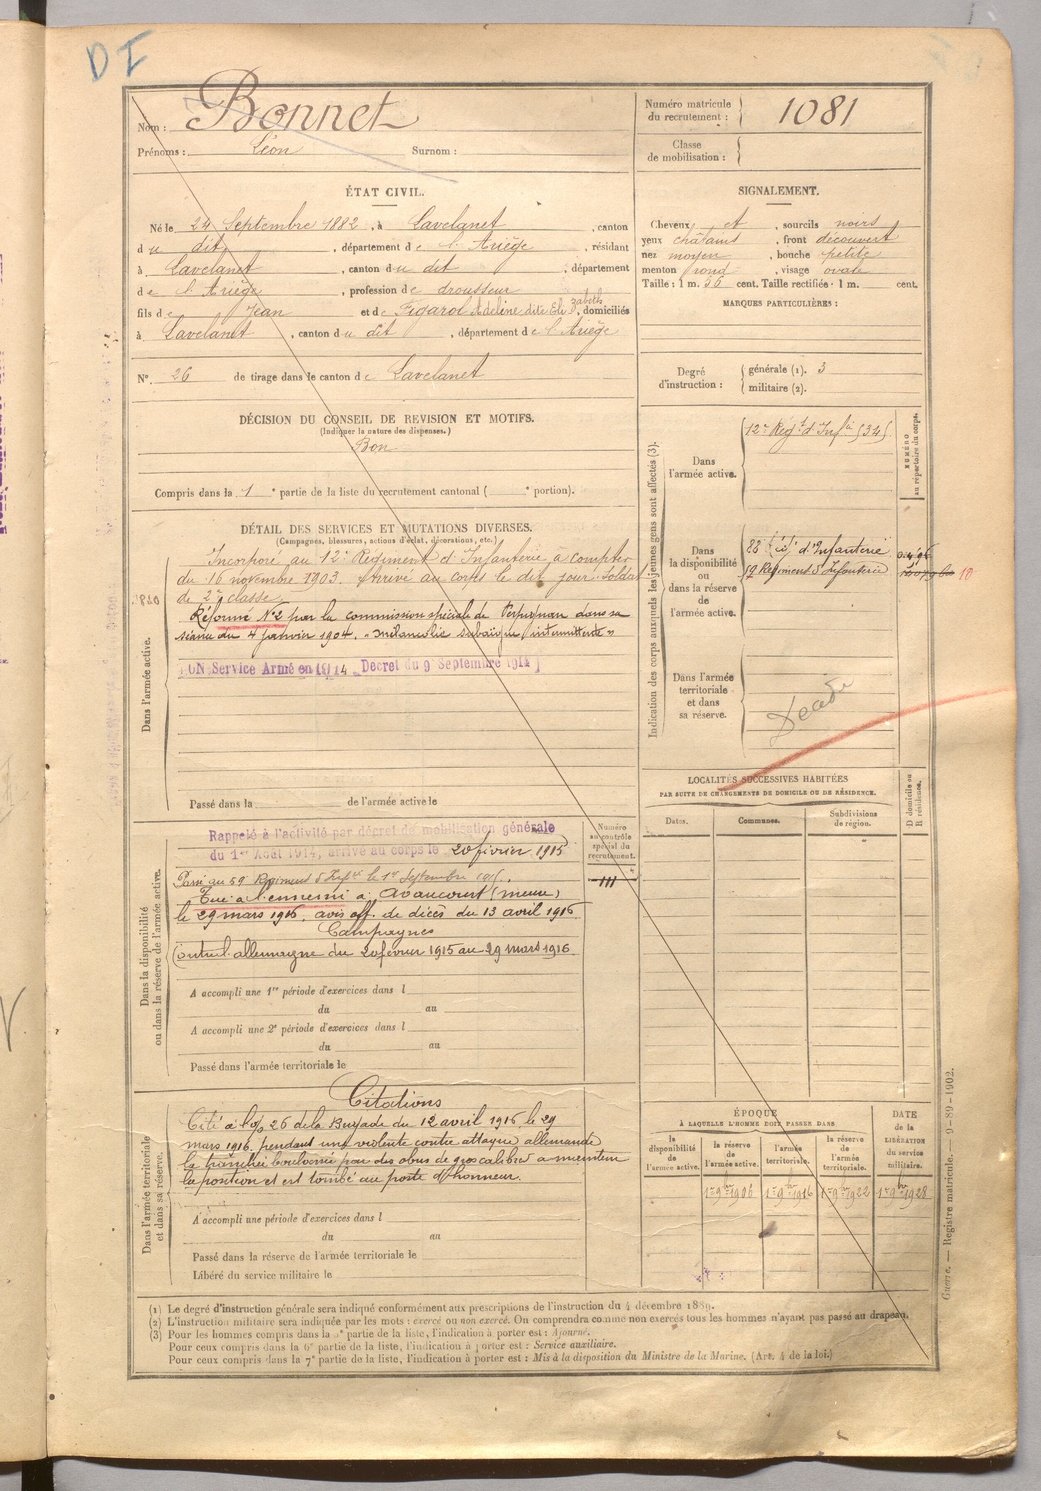 DI
Nom : Bonnet
Prénoms : Léon Surnom :
Numéro matricule du recrutement : 1081
Classe de mobilisation :
ÉTAT CIVIL.
Né le 24 Septembre 1882, à Lavelanet, canton
du dit, département de l'Ariège, résidant
à Lavelanet, canton du dit, département
de l'Ariège, profession de drousseur
fils de Jean et de Figarol Adeline dite Elizabeth, domiciliés
à Lavelanet, canton du dit, département de l'Ariège
N° 26 de tirage dans le canton de Lavelanet
SIGNALEMENT.
Cheveux et, sourcils noirs
yeux châtains, front découvert
nez moyen, bouche petite
menton rond, visage ovale
Taille : 1 m. 56 cent. Taille rectifiée : 1 m. cent.
MARQUES PARTICULIÈRES :
Degré d'instruction : générale (1). 3
militaire (2).
DÉCISION DU CONSEIL DE REVISION ET MOTIFS.
(Indiquer la nature des dispenses.)
Bon
Compris dans la 1e partie de la liste du recrutement cantonal ( e portion).
DÉTAIL DES SERVICES ET MUTATIONS DIVERSES.
(Campagnes, blessures, actions d'éclat, décorations, etc.)
Dans l'armée active.
Incorporé au 12e Régiment d'Infanterie à compter
du 16 novembre 1903. Arrivé au corps le dit jour. Soldat
de 2e classe.
Réformé N°2 par la commission spéciale de Perpignan dans sa
séance du 4 janvier 1904. "mélancolie intermittente"
BON Service Armé en 1914 Décret du 9 Septembre 1914
Passé dans la de l'armée active le
Indication des corps auxquels les jeunes gens sont affectés (3).
NUMÉRO au répertoire du corps.
Dans l'armée active.
12e Régt d'Infie (34)
Dans la disponibilité ou dans la réserve de l'armée active.
88 d'Infanterie
59 Régiment d'Infanterie
Dans l'armée territoriale et dans sa réserve.
Décédé
LOCALITÉS SUCCESSIVES HABITÉES
PAR SUITE DE CHANGEMENTS DE DOMICILE OU DE RÉSIDENCE.
Dates. Communes. Subdivisions de région. D domicile ou R résidence.
Dans la disponibilité ou dans la réserve de l'armée active.
Numéro au contrôle spécial du recrutement.
111
Rappelé à l'activité par décret de mobilisation générale
du 1er Août 1914, arrivé au corps le 20 février 1915
Passé au 59 Régiment d'Infie le 1er Septembre 1915.
Tué à l'ennemi à Avaucourt (meuse)
le 29 mars 1916, avis off. de décès du 13 avril 1916
Campagnes
Contre l'allemagne du 20 février 1915 au 29 mars 1916
A accompli une 1re période d'exercices dans l
du au
A accompli une 2e période d'exercices dans l
du au
Passé dans l'armée territoriale le
Dans l'armée territoriale et dans sa réserve.
Citations
Cité à l'o/ 26 de la Brigade du 12 avril 1916 le 29
mars 1916, pendant une violente contre attaque allemande
la tranchée bouleversée par des obus de gros calibre a maintenu
la position et est tombé au poste d'honneur.
A accompli une période d'exercices dans l
du au
Passé dans la réserve de l'armée territoriale le
Libéré du service militaire le
ÉPOQUE
À LAQUELLE L'HOMME DOIT PASSER DANS
la disponibilité de l'armée active. la réserve de l'armée active. l'armée territoriale. la réserve de l'armée territoriale.
DATE de la LIBÉRATION du service militaire.
1er 9bre 1906 1er 9bre 1916 1er 9bre 1922 1er 9bre 1928
(1) Le degré d'instruction générale sera indiqué conformément aux prescriptions de l'instruction du 4 décembre 1889.
(2) L'instruction militaire sera indiquée par les mots : exercé ou non exercé. On comprendra comme non exercés tous les hommes n'ayant pas passé au drapeau.
(3) Pour les hommes compris dans la 5e partie de la liste, l'indication à porter est : Ajourné.
Pour ceux compris dans la 6e partie de la liste, l'indication à porter est : Service auxiliaire.
Pour ceux compris dans la 7e partie de la liste, l'indication à porter est : Mis à la disposition du Ministre de la Marine. (Art. 4 de la loi.)
Guerre. — Registre matricule. — 9-89-1902.